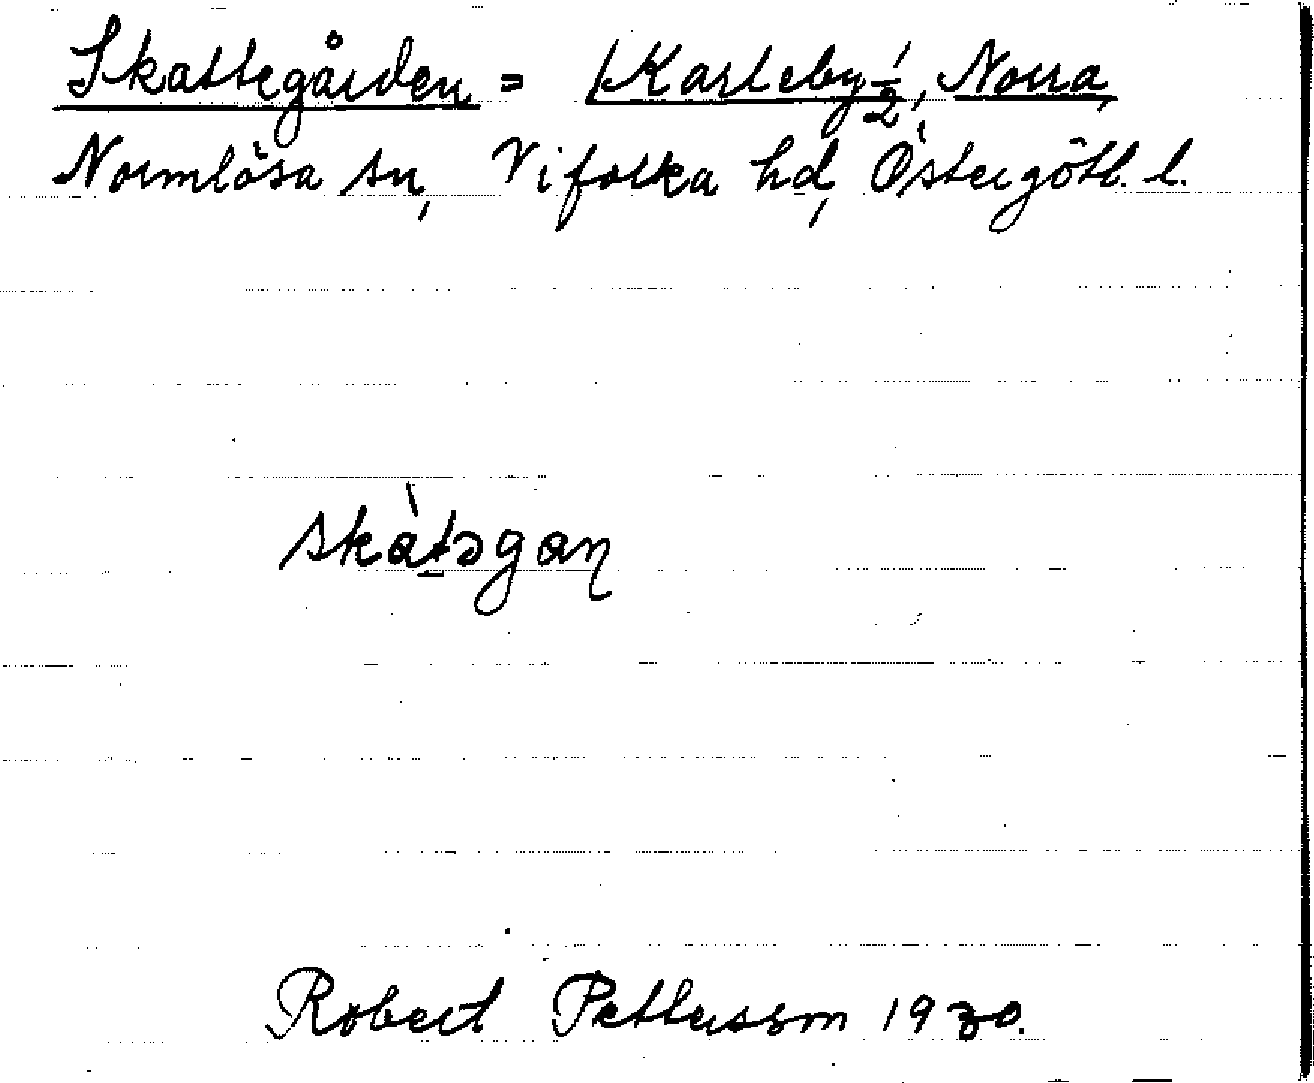 Skattegården = Karleby ½, Norra,
Normlösa sn, Vifolka hd, Östergötl. l.
skàt̠əgan̡
Robert Pettersson 1930.